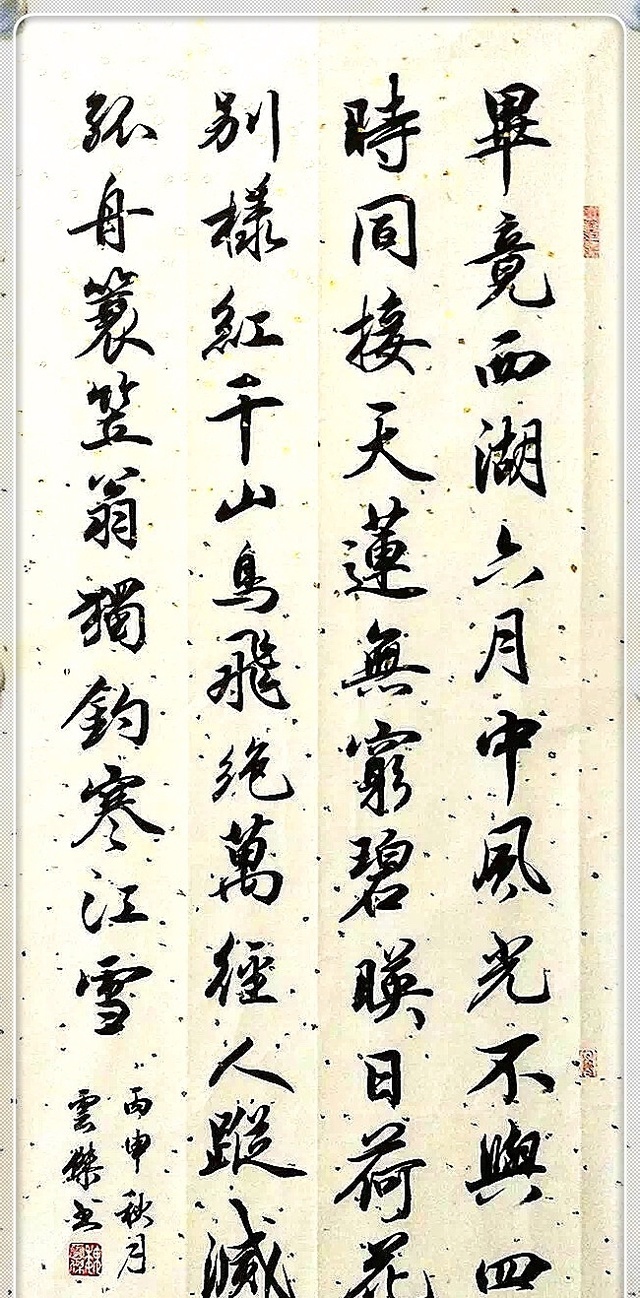 畢竟西湖六月中風光不與四
時同接天蓮無窮碧暎日荷花
別樣紅千山鳥飛絕萬徑人蹤滅
孤舟簑笠翁獨釣寒江雪
丙申秋月
雲傑书